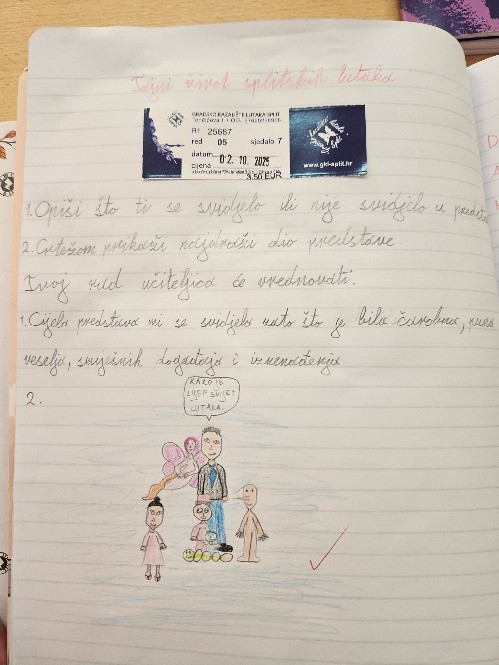 Tajni život splitskih lutaka
GRADSKO KAZALIŠTE LUTAKA SPLIT
R1 25687
red 05 sjedalo 7
datum 02. 10. 2025
cijena 3,50 EUR
www.gkl-split.hr
1. Opiši što ti se svidjelo ili nije svidjelo u
2. Crtežom prikaži najdraži dio predstave.
Tvoj rad učiteljica će vrednovati.
1. Cijela predstava mi se svidjela zato što je bila čarobna, puna
veselja, smiješnih događaja i iznenađenja
2.
KAKO JE
LIJEP SVIJET
LUTAKA.